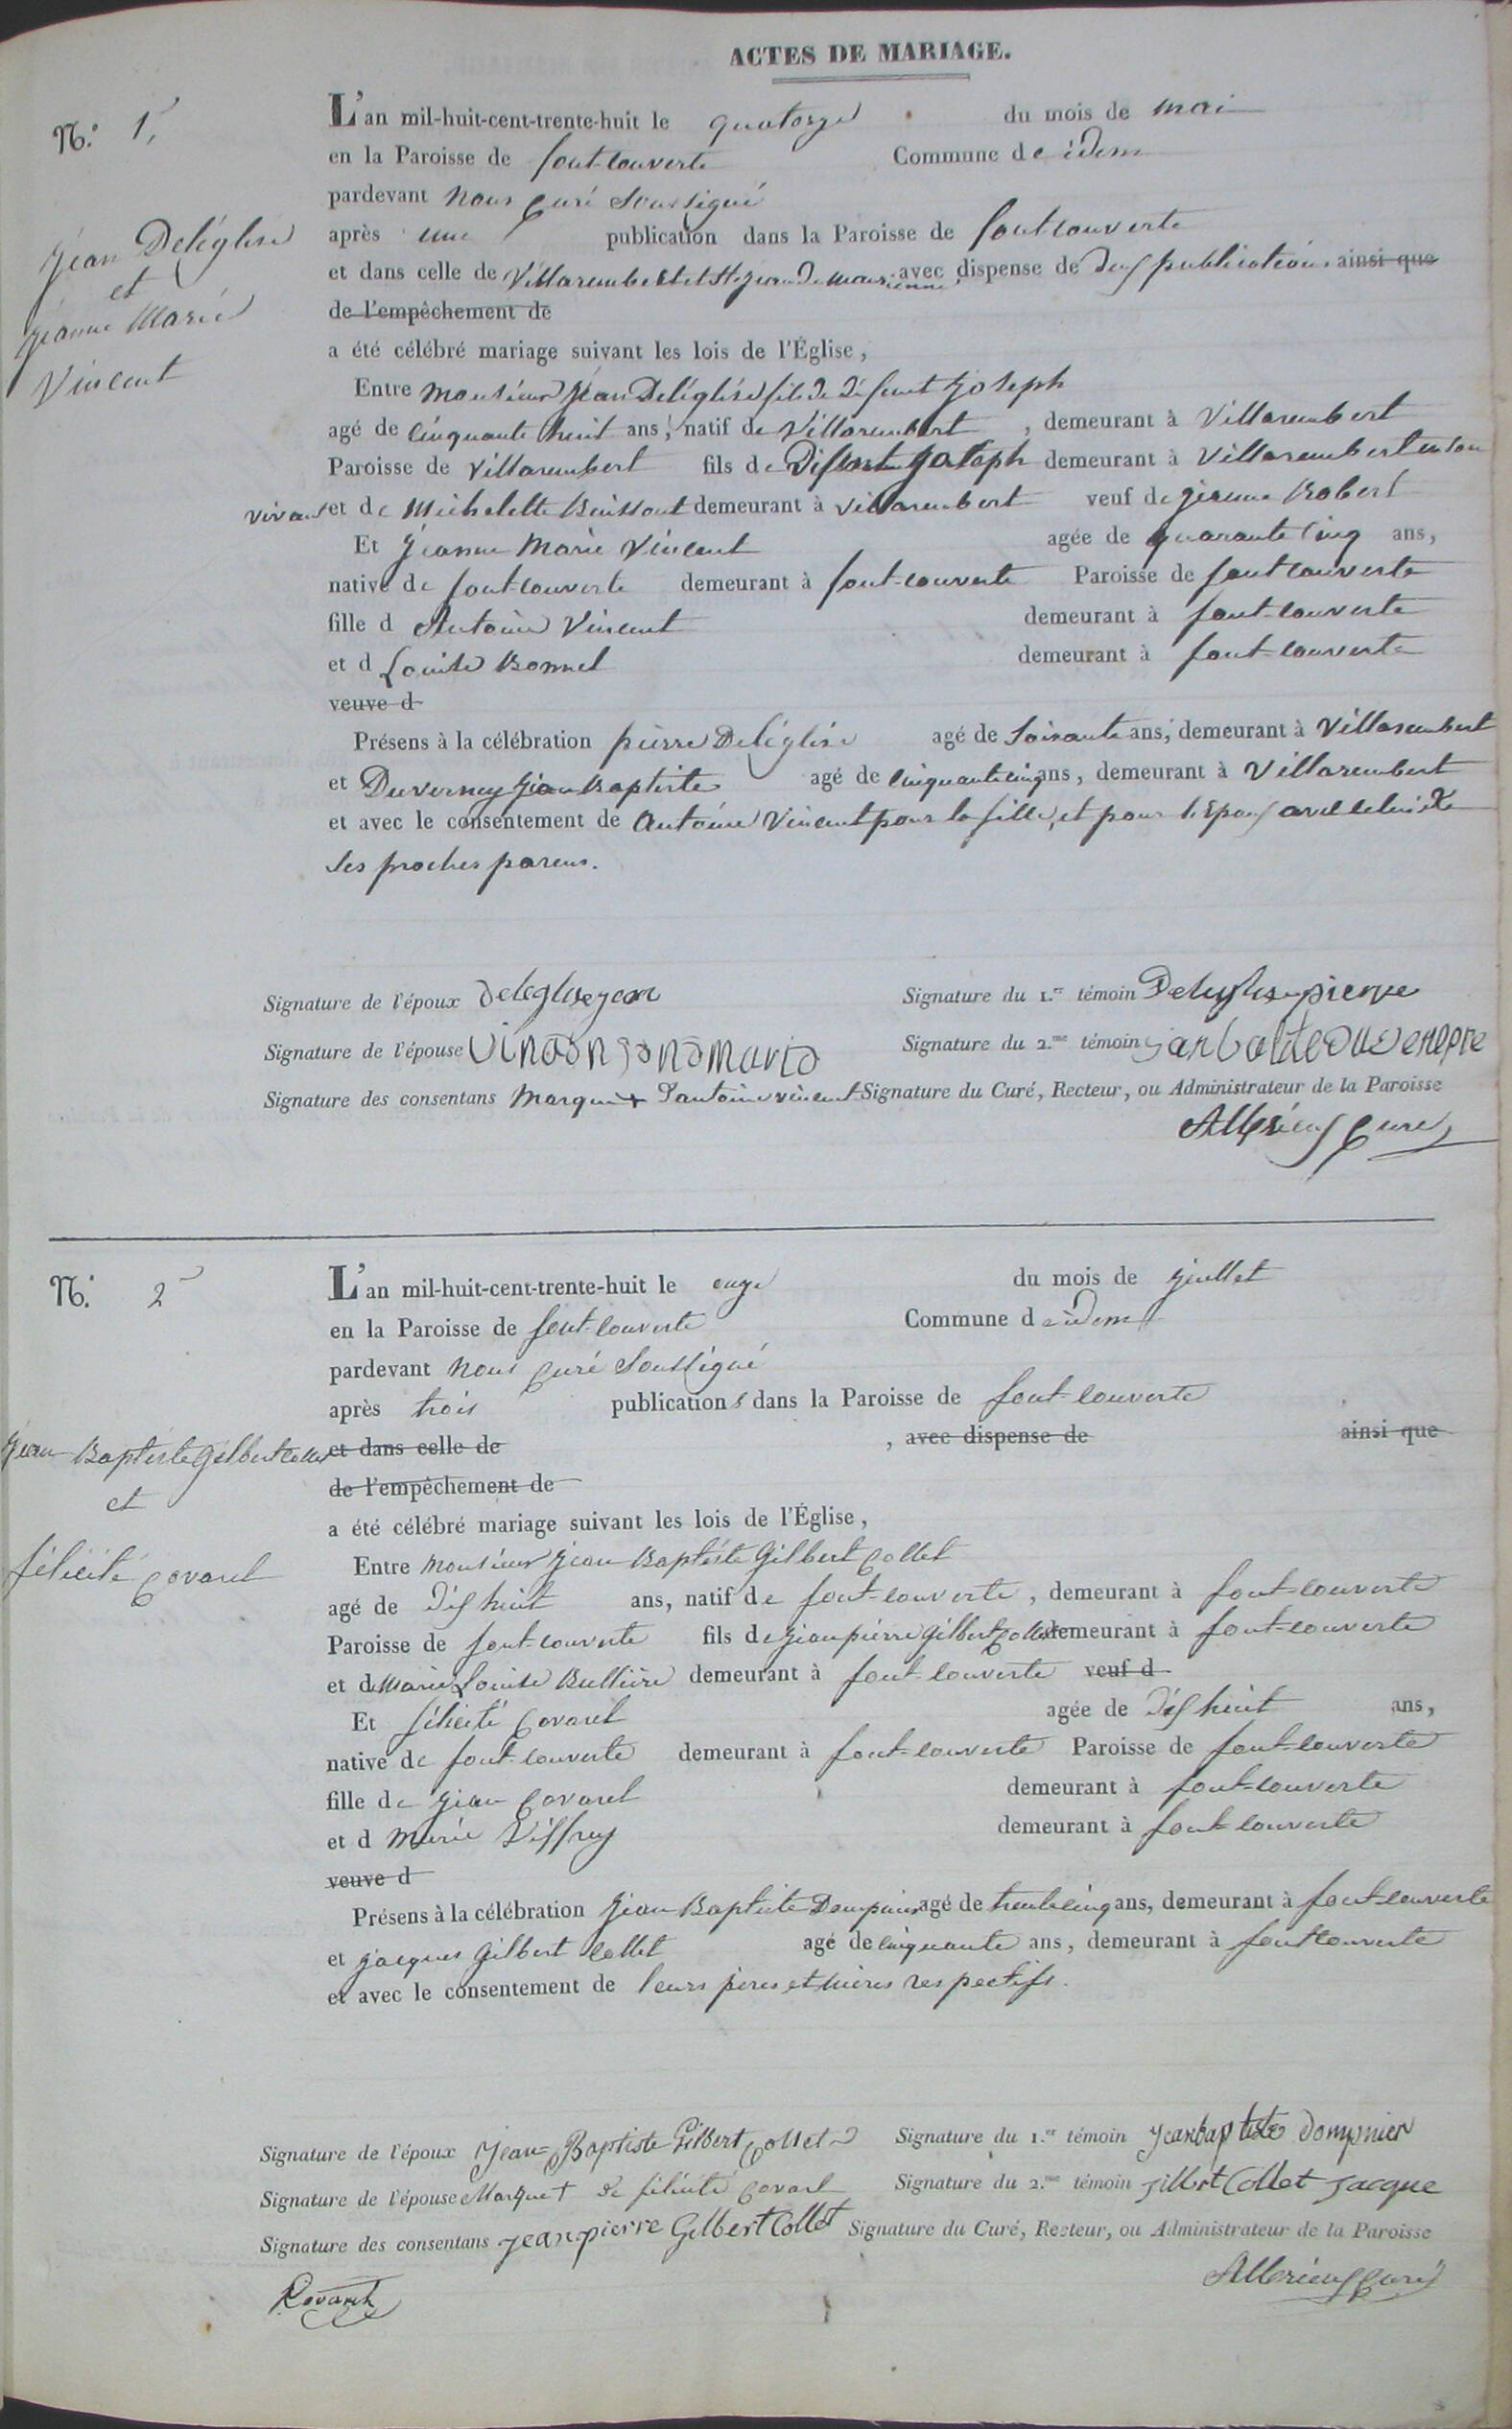 ACTES DE MARIAGE.
N.° 1,
Jean Deléglise
et
jeanne Marie
Vincent
L'an mil-huit-cent-trente-huit le quatorze du mois de mai
en la Paroisse de font-couverte Commune de idem
pardevant nous curé soussigné
après une publication dans la Paroisse de fontcouverte
et dans celle de Villarembert et St jean de maurienne, avec dispense de deux publications ainsi que
de l'empêchement de
a été célébré mariage suivant les lois de l'Église,
Entre monsieur jean Deléglise fils de défunt joseph
agé de cinquante huit ans, natif de Villarembert, demeurant à Villarembert
Paroisse de Villarembert fils de Défunt joseph demeurant à Villarembert en son
vivant et de Michelette Buissont demeurant à villarembert veuf de jeanne Robert
Et jeanne Marie Vincent agée de quarante cinq ans,
native de font-couverte demeurant à font-couverte Paroisse de font couverte
fille d Antoine Vincent demeurant à font-couverte
et d Louise Bonnel demeurant à font-couverte
veuve d
Présens à la célébration pierre Deléglise agé de soixante ans, demeurant à Villarembert
et Duverney jean Baptiste agé de cinquante cinq ans, demeurant à Villarembert
et avec le consentement de Antoine Vincent pour la fille, et pour l'Epoux avec celui de
ses proches parens.
Signature de l'époux deleglise jean
Signature du 1.er témoin Deleglise pierre
Signature de l'épouse
Signature du 2.me témoin
Signature des consentans Marque + D'antoine vincent
Signature du Curé, Recteur, ou Administrateur de la Paroisse
curé
N.° 2
jean Baptiste Gilbert collet
et
félicité Covarel
L'an mil-huit-cent-trente-huit le onze du mois de juillet
en la Paroisse de font-couverte Commune d e idem
pardevant nous curé Soussigné
après trois publications dans la Paroisse de font-couverte
et dans celle de , avec dispense de ainsi que
de l'empêchement de
a été célébré mariage suivant les lois de l'Église,
Entre monsieur jean Baptiste Gilbert Collet
agé de dix huit ans, natif de font-couverte, demeurant à font-couverte
Paroisse de font-couverte fils de jean pierre gilbert collet demeurant à font-couverte
et de Marie Louise Bullière demeurant à font-couverte veuf d
Et félicité Covarel agée de dix huit ans,
native de font-couverte demeurant à font-couverte Paroisse de font-couverte
fille de jean Covarel demeurant à font-couverte
et d Marie Siffrey demeurant à font-couverte
veuve d
Présens à la célébration jean Baptiste Dompnier agé de trente cinq ans, demeurant à font-couverte
et jacques Gilbert Collet agé de cinquante ans, demeurant à font couverte
et avec le consentement de leurs pères et mères respectifs.
Signature de l'époux Jean-Baptiste Gilbert Collet
Signature du 1.er témoin Jean baptiste Dompnier
Signature de l'épouse Marque + de félicité Covarel
Signature du 2.me témoin Jilbert Collet Jacque
Signature des consentans Jean pierre Gilbert Collet
Signature du Curé, Recteur, ou Administrateur de la Paroisse
curé
Covarel